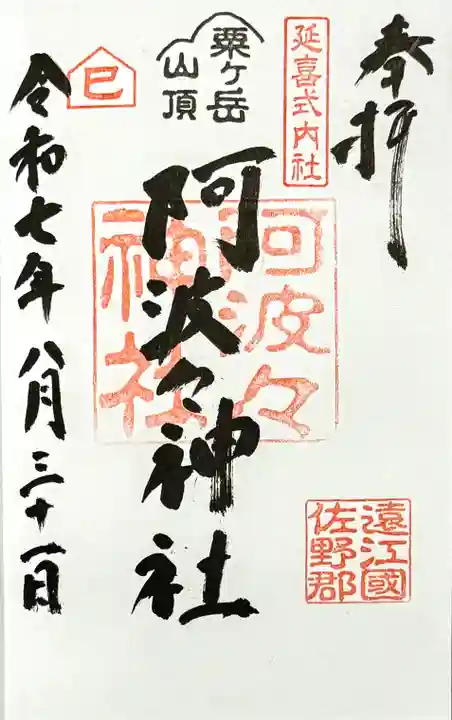 奉拝
延喜式内社
遠江國
佐野郡
粟ヶ岳
山頂
阿波々神社
阿波々
神社
巳
令和七年八月三十一日